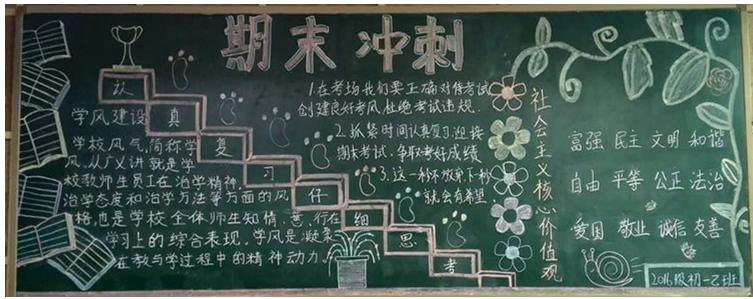 期末冲刺
认
真
复
习
仔
细
思
考
学风建设
学校风气,简称学
风,从广义讲就是学
校教师生员工在治学精神,
治学态度和治学方法等方面的风
格,也是学校全体师生知情、意、行在
学习上的综合表现。学风是凝聚
在教与学过程中的精神动力。
1.在考场我们要正确对待考试
创建良好考风杜绝考试违规。
2.抓紧时间认真复习,迎接
期末考试,争取考好成绩
3.这一秒不放弃下一秒
就会有希望。
社会主义核心价值观
富强 民主 文明 和谐
自由 平等 公正 法治
爱国 敬业 诚信 友善
2016级初一乙班